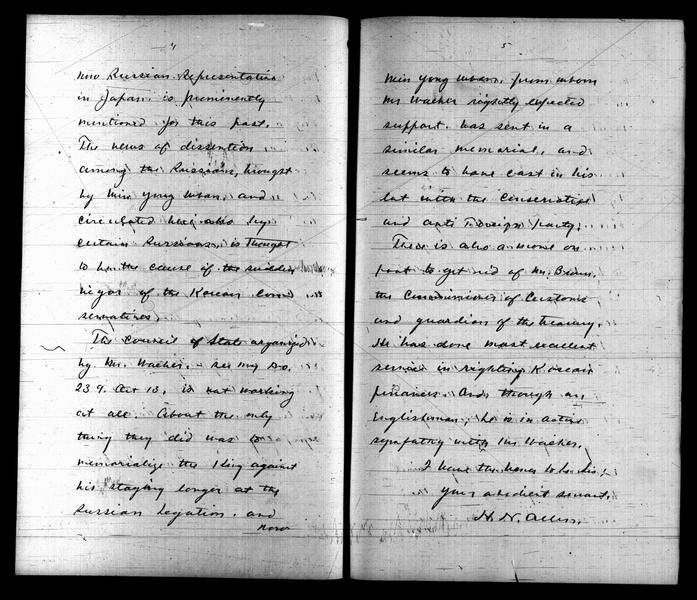 4
now Russian Representative
in Japan, is prominently
mentioned for this post.
The news of dissention
among the Russians, brought
by Min Yong Whan, and
circulated here also by
certain Russians, is thought
to be the cause of the sudden
vigor of the Korean Conservatives
The Council of State organized
by Mr. Waeber, see my No.
239. Oct 13, is not working
at all. About the only
thing they did was to
memorialize the King against
his staying longer at the
Russian Legation, and
now
5
Min Yong Whan, from whom
Mr Waeber rightly expected
support, has sent in a
similar memorial, and
seems to have cast in his
lot with the conservative
and anti Foreign party.
There is also a move on
foot to get rid of Mr. Brown,
the Commissioner of Customs
and guardian of the treasury.
He has done most excellent
service in righting Korean
finances. And though an
Englishman, he is in active
sympathy with Mr Waeber.
I have the honor to be Sir,
Your obedient servant,
H. N. Allen.